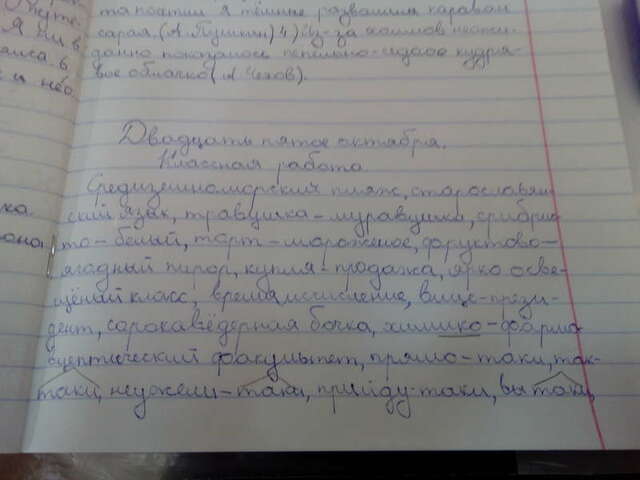 та постил я тёмные развалины караван
сарая. (А. Пушкин) 4) Из-за холмов неожи-
данно показалось пепельно-седое кудря-
вое облачко (А. Чехов).
Я ни в
в
и
Двадцать пятое октября.
Классная работа
Средиземноморский пляж, старославян
ский язык, травушка-муравушка, срибрис
то-белый, торт-мороженое, фруктово-
ягодный пирог, купля-продажа, ярко осве-
щёный класс, времяисчисление, вице-прези-
дент, сорокаведёрная бочка, химико-фарма
вцептический факультет, прямо-таки, так-
таки, неужели-таки, прийду-таки, вы таки,